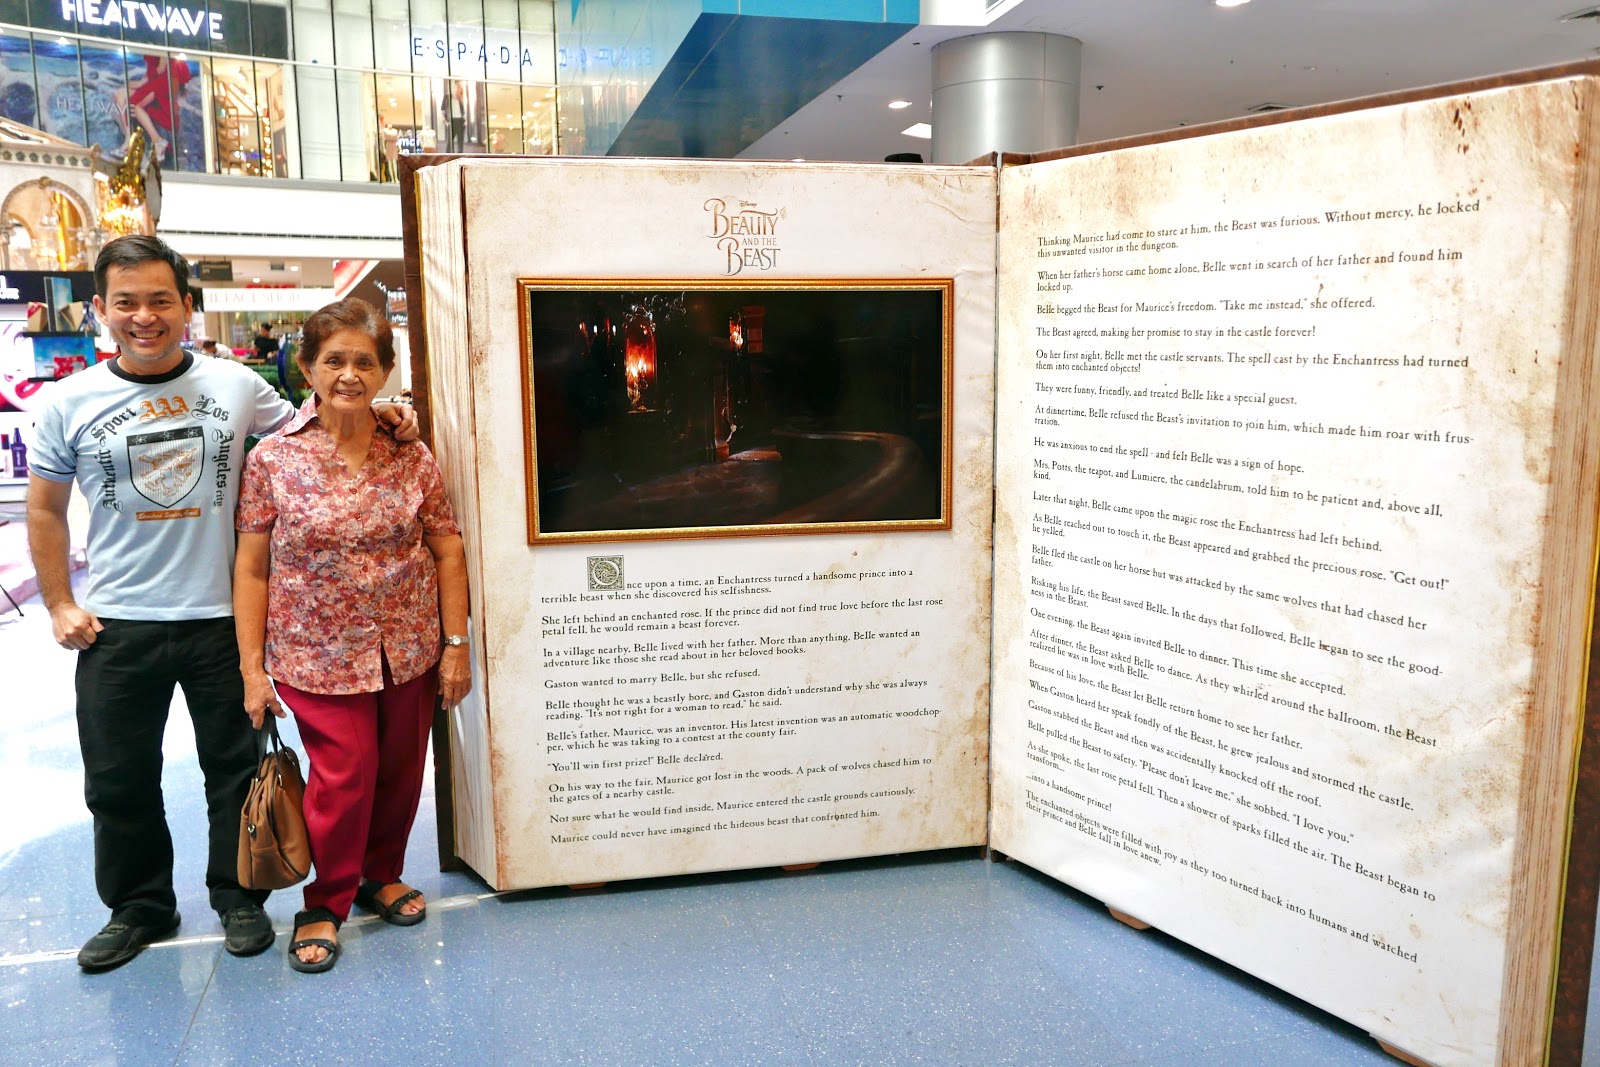 HEATWAVE
E·S·P·A·D·A
HEATWAVE
THE FACE SHOP
Authentic Sport AAA Los Angeles city
Disney
BEAUTY
AND THE
BEAST
Once upon a time, an Enchantress turned a handsome prince into a
terrible beast when she discovered his selfishness.
She left behind an enchanted rose. If the prince did not find true love before the last rose
petal fell, he would remain a beast forever.
In a village nearby, Belle lived with her father. More than anything, Belle wanted an
adventure like those she read about in her beloved books.
Gaston wanted to marry Belle, but she refused.
Belle thought he was a beastly bore, and Gaston didn't understand why she was always
reading. "It's not right for a woman to read," he said.
Belle's father, Maurice, was an inventor. His latest invention was an automatic woodchop-
per, which he was taking to a contest at the county fair.
"You'll win first prize!" Belle declared.
On his way to the fair, Maurice got lost in the woods. A pack of wolves chased him to
the gates of a nearby castle.
Not sure what he would find inside, Maurice entered the castle grounds cautiously.
Maurice could never have imagined the hideous beast that confronted him.
Thinking Maurice had come to stare at him, the Beast was furious. Without mercy, he locked
this unwanted visitor in the dungeon.
When her father's horse came home alone, Belle went in search of her father and found him
locked up.
Belle begged the Beast for Maurice's freedom. "Take me instead," she offered.
The Beast agreed, making her promise to stay in the castle forever!
On her first night, Belle met the castle servants. The spell cast by the Enchantress had turned
them into enchanted objects!
They were funny, friendly, and treated Belle like a special guest.
At dinnertime, Belle refused the Beast's invitation to join him, which made him roar with frus-
tration.
He was anxious to end the spell - and felt Belle was a sign of hope.
Mrs. Potts, the teapot, and Lumiere, the candelabrum, told him to be patient and, above all,
kind.
Later that night, Belle came upon the magic rose the Enchantress had left behind.
As Belle reached out to touch it, the Beast appeared and grabbed the precious rose. "Get out!"
he yelled.
Belle fled the castle on her horse but was attacked by the same wolves that had chased her
father.
Risking his life, the Beast saved Belle. In the days that followed, Belle began to see the good-
ness in the Beast.
One evening, the Beast again invited Belle to dinner. This time she accepted.
After dinner, the Beast asked Belle to dance. As they whirled around the ballroom, the Beast
realized he was in love with Belle.
Because of his love, the Beast let Belle return home to see her father.
When Gaston heard her speak fondly of the Beast, he grew jealous and stormed the castle.
Gaston stabbed the Beast and then was accidentally knocked off the roof.
Belle pulled the Beast to safety. "Please don't leave me," she sobbed. "I love you."
As she spoke, the last rose petal fell. Then a shower of sparks filled the air. The Beast began to
transform...
...into a handsome prince!
The enchanted objects were filled with joy as they too turned back into humans and watched
their prince and Belle fall in love anew.